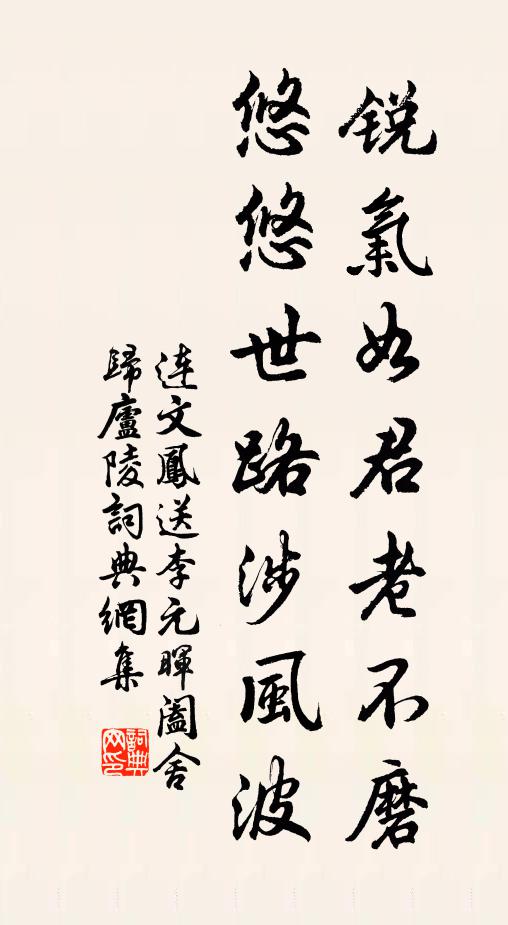 銳氣如君老不磨
悠悠世路涉風波
連文鳳送李元暉闔舍
歸廬陵詞典網集
詞典网印